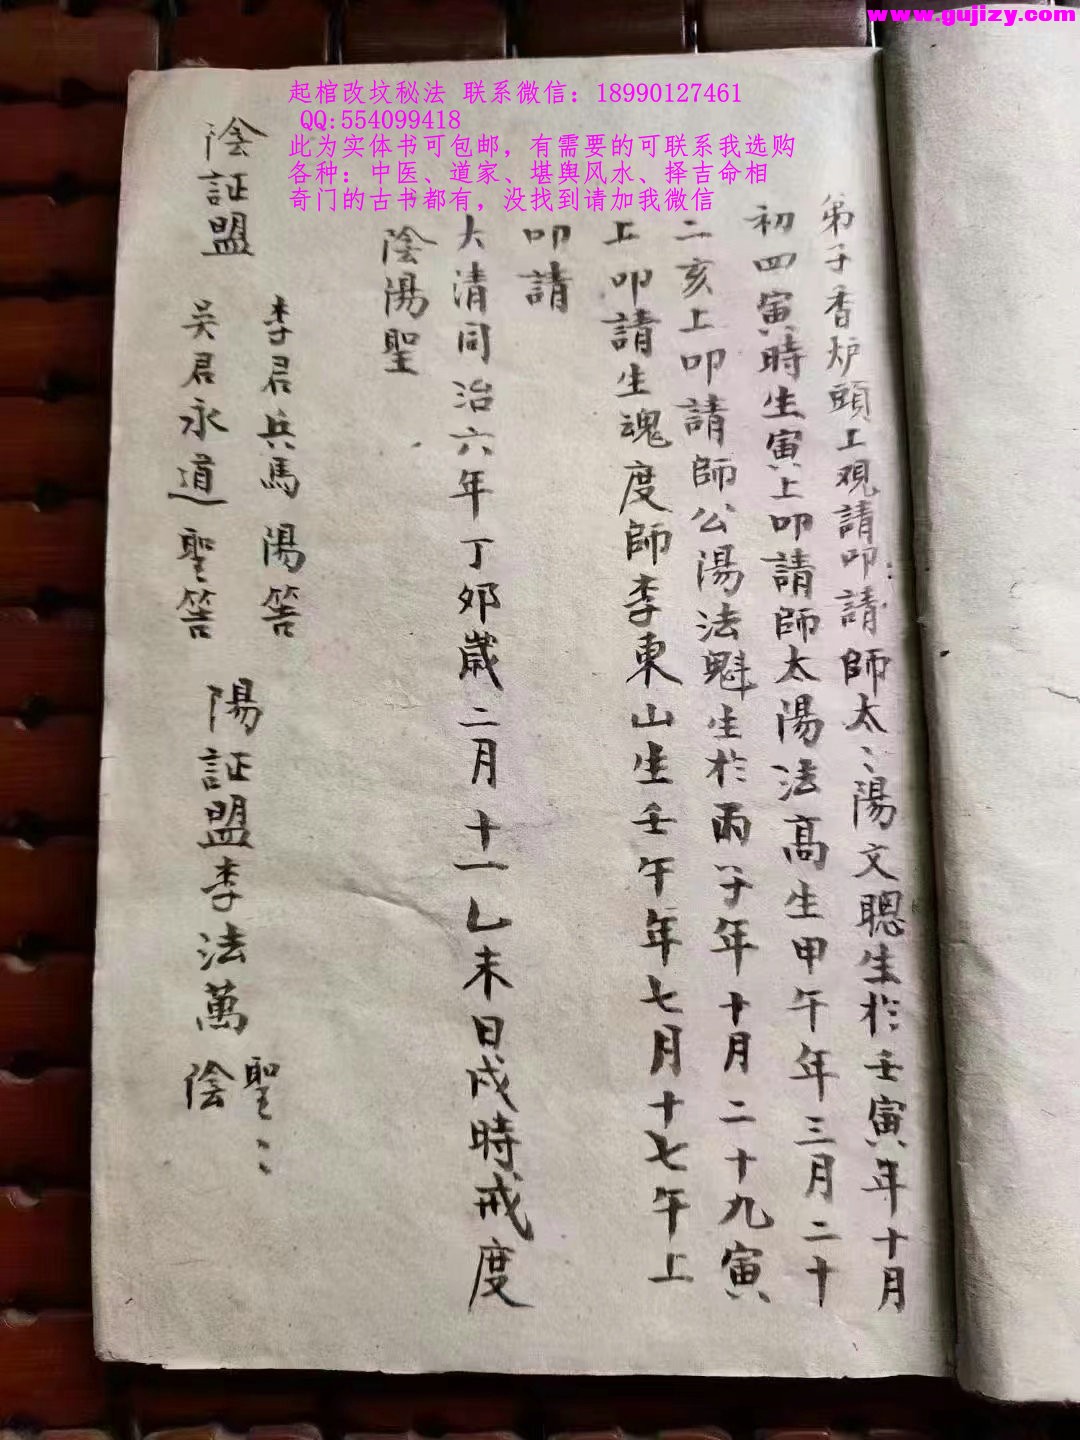 www.gujizy.com
起棺改坟秘法 联系微信：18990127461
QQ:554099418
此为实体书可包邮，有需要的可联系我选购
各种：中医、道家、堪舆风水、择吉命相
奇门的古书都有，没找到请加我微信
弟子香炉頭上观請叩請師太〻陽文聰生於壬寅年十月
初四寅時生寅上叩請師太陽法髙生甲午年三月二十
二亥上叩請師公陽法魁生於丙子年十月二十九寅
上叩請生魂度師李東山生壬午年七月十七午上
叩請
大清同治六年丁夘歲二月十一乙未日戌時戒度
陰陽聖
陰証盟
李君兵馬陽筶
吴君永道聖筶
陽証盟李法萬
聖〻
陰